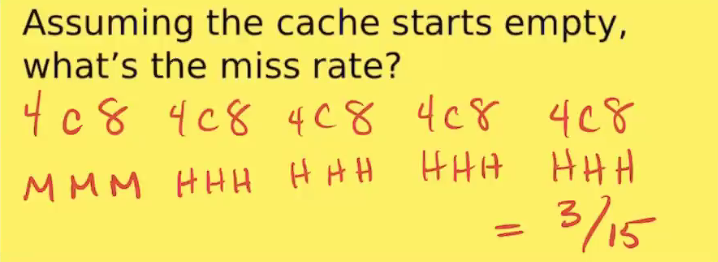 Assuming the cache starts empty,
what's the miss rate?
4 C 8 4 C 8 4 C 8 4 C 8 4 C 8
M M M H H H H H H H H H H H H
= 3/15